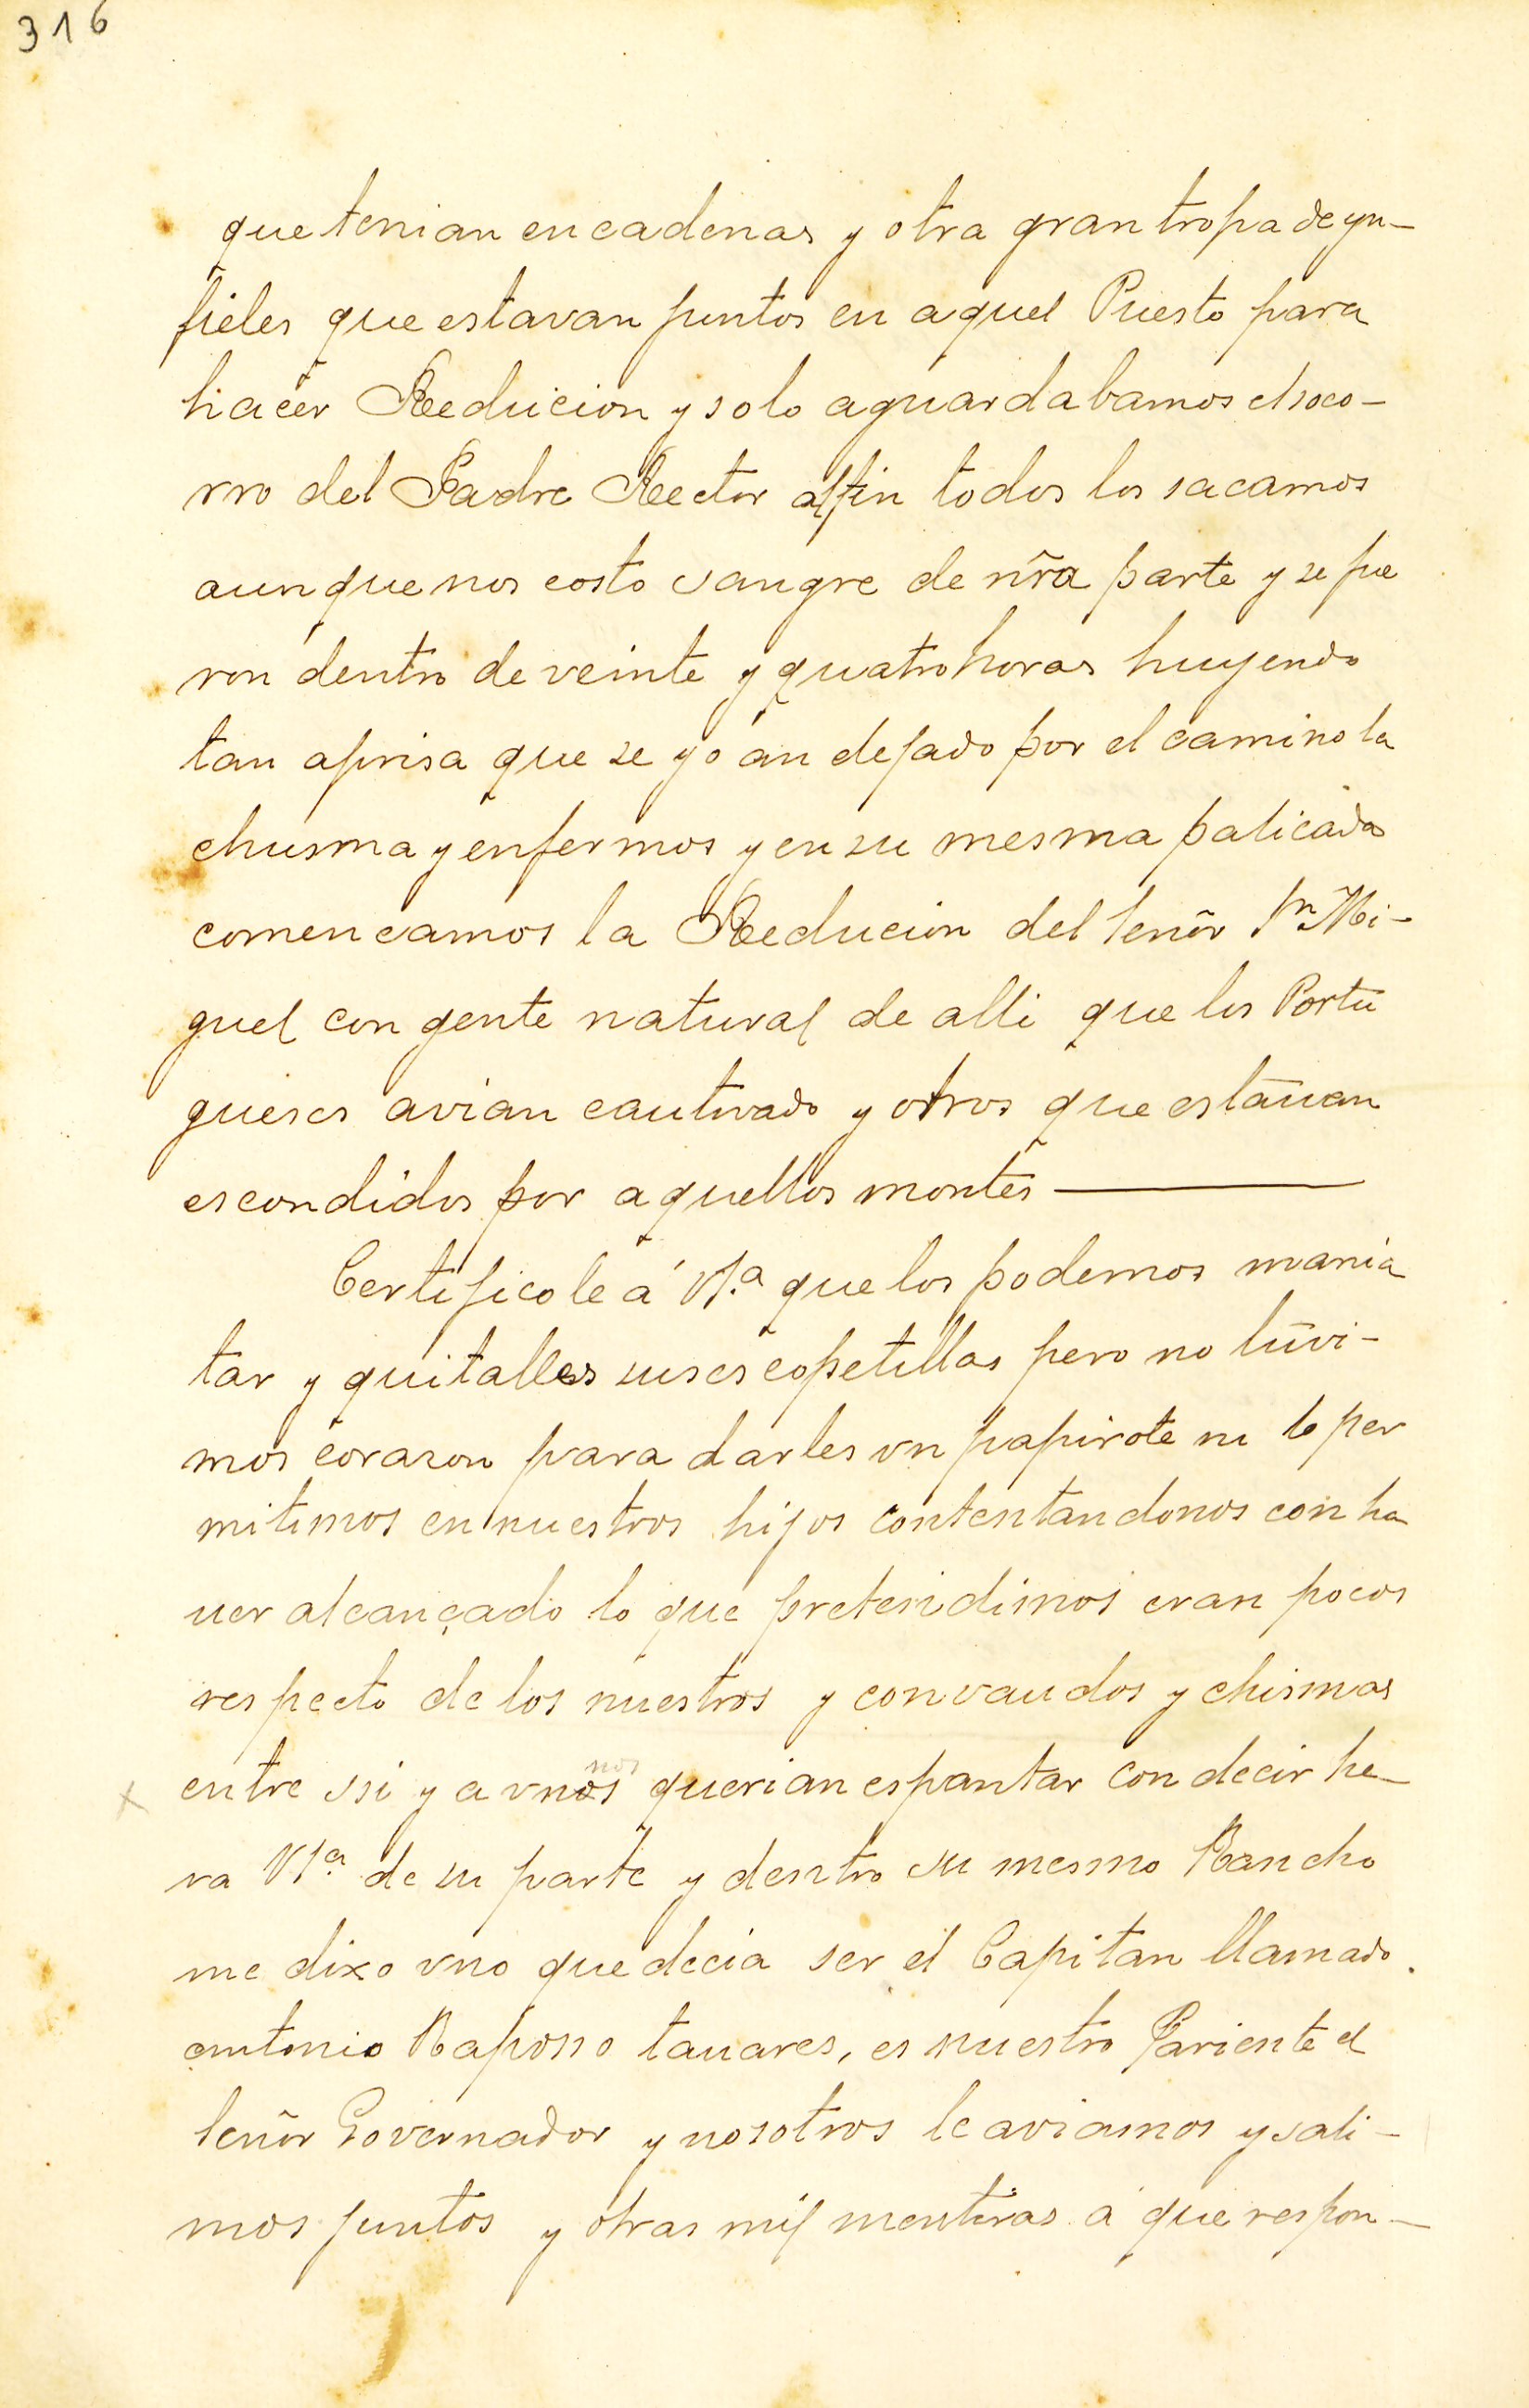 316
que tenian en cadenas y otra gran tropa de yn-
fieles que estavan juntos en aquel Puesto para
hacer Reducion y solo aguardabamos el soco-
rro del Padre Rector alfin todos los sacamos
aunque nos costo sangre de nr̃a parte y se fue
ron dentro de veinte y quatro horas huyendo
tan aprisa que se yo an dejado por el camino la
chusma y enfermos y en su mesma palicada
comencamos la Reducion del Señor Sn Mi-
guel con gente natural de alli que los Portu
gueses avian cautivado y otros que estauan
escondidos por aquellos montes
Certificole á VSa que los podemos mania
tar y quitalles sus escopetillas pero no tuvi-
mos corazon para darles vn papirote ni lo per
mitimos en nuestros hijos contentandonos con ha
uer alcançado lo que pretendimos eran pocos
respecto de los nuestros y con vandos y chismas
nos
x entre ssi y a vnos querian espantar con decir he-
ra VSa de su parte y dentro su mesmo Rancho
me dixo vno que decia ser el Capitan llamado
antonio Raposso tauares, es nuestro Pariente el
Señor Governador y nosotros le aviamos y sali-
mos juntos y otras mil mentiras á que respon-